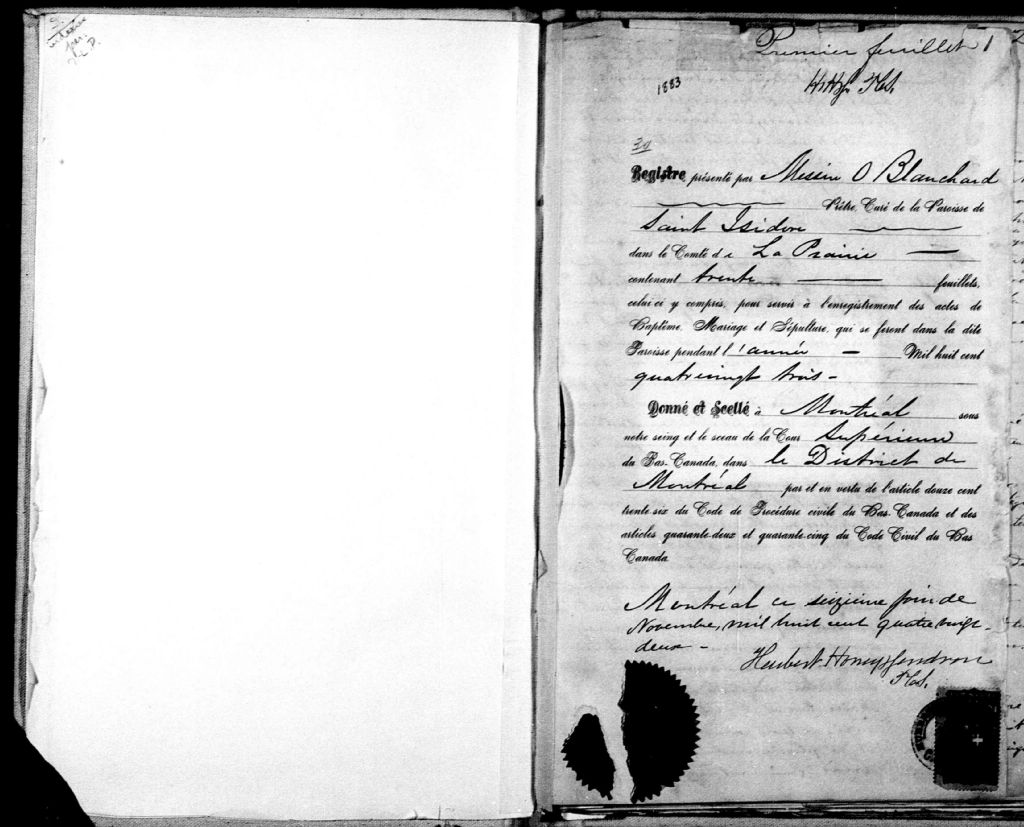 Premier feuillet 1
1883
Registre présenté par Messire O Blanchard
Prêtre, Curé de la Paroisse de
Saint Isidore
dans le Comté de La Prairie
contenant trente feuillets,
celui-ci y compris, pour servir à l'enregistrement des actes de
Baptême, Mariage et Sépulture, qui se feront dans la dite
Paroisse pendant l'année Mil huit cent
quatrevingt trois -
Donné et Scellé à Montréal sous
notre seing et le sceau de la Cour Supérieure
du Bas-Canada, dans le District de
Montréal par et en vertu de l'article douze cent
trente-six du Code de Procédure civile du Bas-Canada et des
articles quarante-deux et quarante-cinq du Code Civil du Bas
Canada
Montréal ce seizieme jour de
Novembre, mil huit cent quatre vingt-
deux -